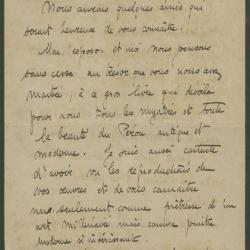 Nous aurons quelques amis qui
seront heureux de vous connaître.
Mon époux et moi nous pensons
sans cesse au trésor que vous nous avez
montré, à ce gros livre qui dévoile
pour nous tous les mystères et toute
la beauté du Pérou antique et
moderne. Je suis aussi
d'avoir vu les reproductions de
vos œuvres et de vous connaître
non seulement comme prêtresse de un
art millénaire mais comme peintre
moderne si intéressante